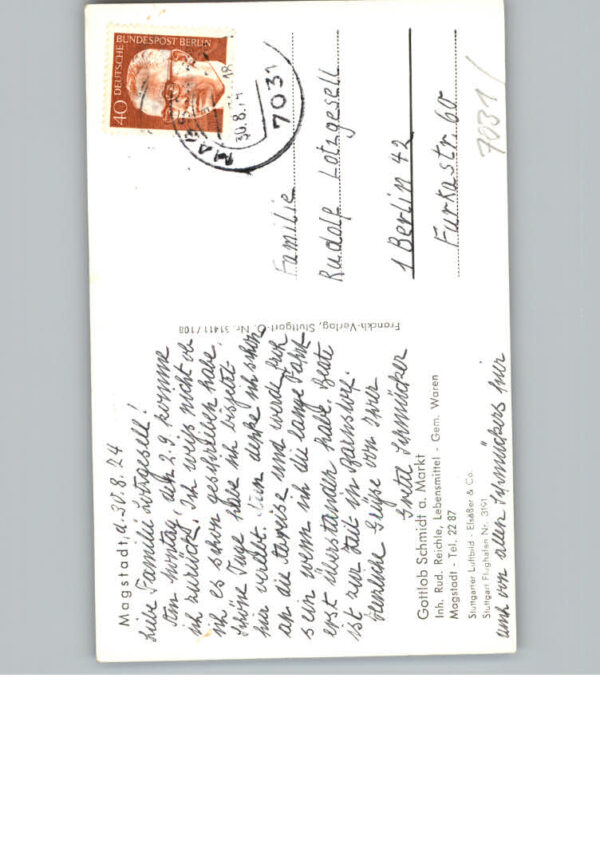 Magstadt, d. 30.8.74
Liebe Familie Lotzgesell!
Am Montag, den 2.9. komme
ich zurück. Ich weiß nicht ob
ich es schon geschrieben habe.
Schöne Tage habe ich bisjetzt
hier verlebt. Nun denke ich schon
an die und werde froh
sein wenn ich die lange Fahrt
erst überstanden habe. Beate
ist zur Zeit in
Herzliche Grüße von Ihrer
Greta Schmücker
und von allen Schmückers hier
Gottlob Schmidt a. Markt
Inh. Rud. Reichle, Lebensmittel - Gem. Waren
Magstadt - Tel. 22 87
Stuttgarter Luftbild - Elsäßer & Co.
Stuttgart Flughafen Nr. 3191
Franckh-Verlag, Stuttgart-O. Nr. 31411/108
40 DEUTSCHE BUNDESPOST BERLIN
30.8.74
7031
Familie
Rudolf Lotzgesell
1 Berlin 42
Furkastr. 60
7031/